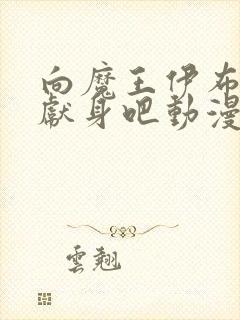 向魔王伊布
獻身吧動漫
雲翹